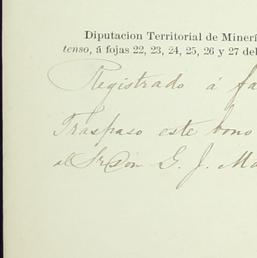 Diputacion Territorial de Minerí
tenso, á fojas 22, 23, 24, 25, 26 y 27 del
Registrado á fa
Traspaso este bono
al Sr Don G. J. Ma